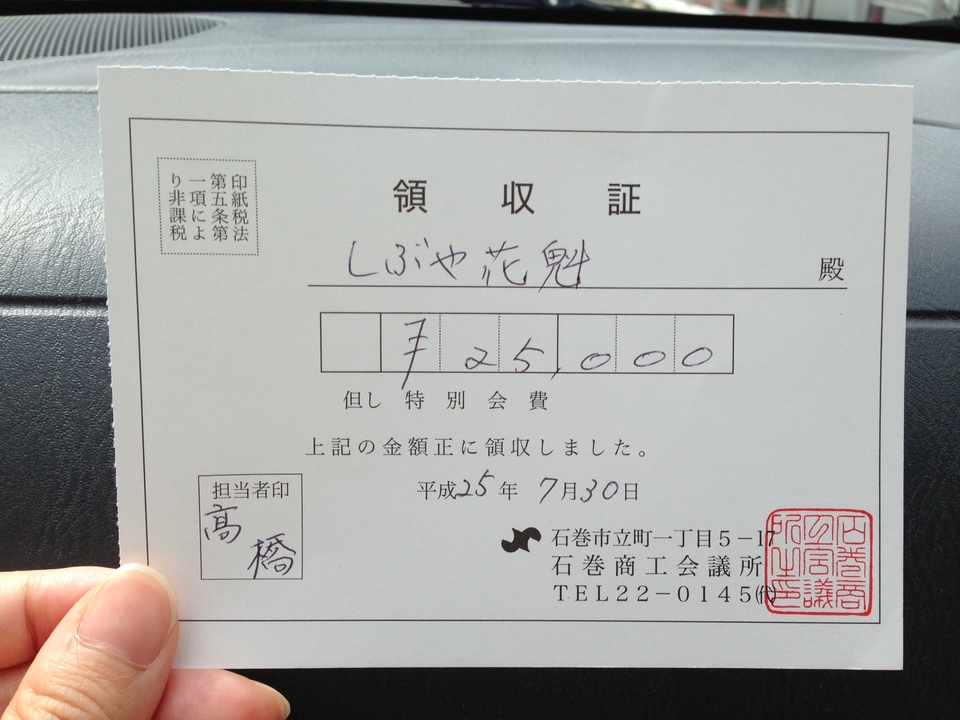 印紙税法
第五条第
一項によ
り非課税
領収証
しぶや花魁 殿
¥25,000
但し特別会費
上記の金額正に領収しました。
平成25年7月30日
担当者印
高橋
石巻市立町一丁目5-17
石巻商工会議所
TEL22-0145(代)
石巻商
工会議
所之印